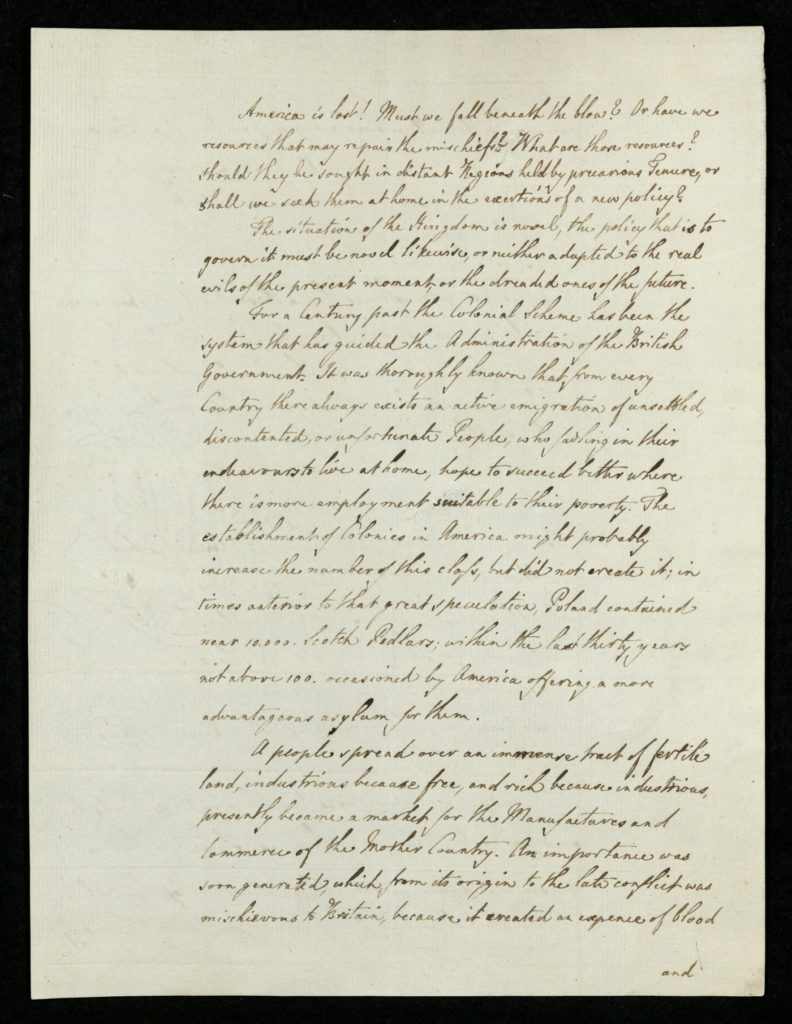 America is lost! Must we fall beneath the blow? Or have we
resources that may repair the mischiefs? What are those resources?
Should they be sought in distant Regions held by precarious Tenure, or
shall we seek them at home in the exertions of a new policy?
The situation of the Kingdom is novel, the policy that is to
govern it must be novel likewise, or neither adapted to the real
evils of the present moment, or the dreaded ones of the future.
For a Century past the Colonial Scheme has been the
system that has guided the Administration of the British
Government. It was thoroughly known that, from every
Country there always exists an active emigration of unsettled,
discontented, or unfortunate People, who failing in their
endeavours to live at home, hope to succeed better where
there is more employment suitable to their poverty. The
establishment of Colonies in America might probably
increase the number of this class, but did not create it; in
times anterior to that great speculation, Poland contained
near 10.000. Scotch Pedlars; within the last thirty years
not above 100. occasioned by America offering a more
advantageous asylum for them.
A people spread over an immense tract of fertile
land, industrious because free, and rich because industrious,
presently became a market for the Manufactures and
Commerce of the Mother Country. An importance was
soon generated, which from its origin to the late conflict was
mischievous to Britain, because it created an expence of blood
and